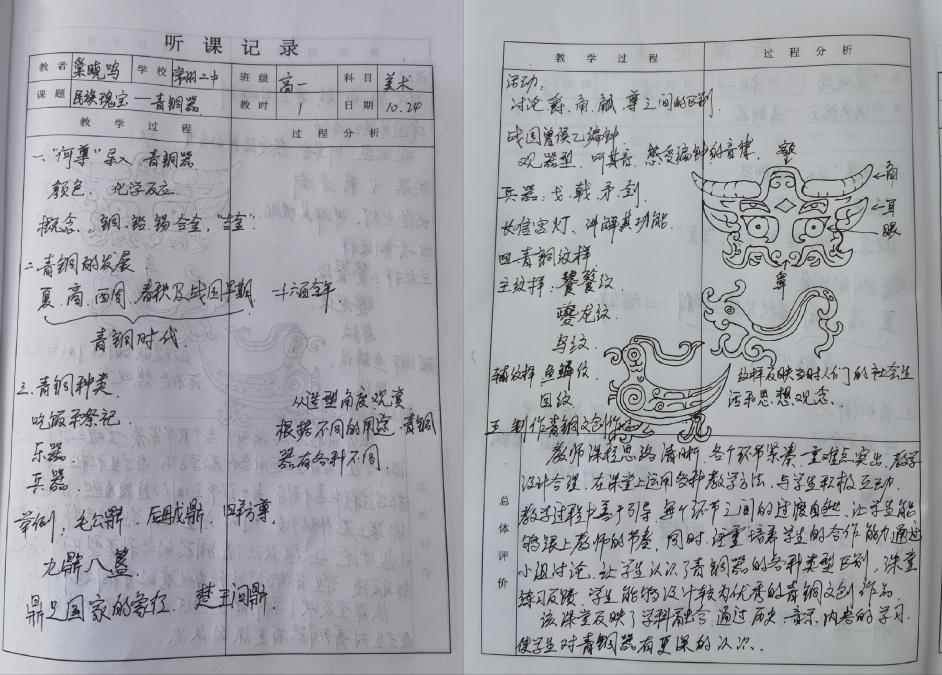 听课记录
教者 巢晓鸣 学校 常州二中 班级 高一 科目 美术
课题 民族瑰宝——青铜器 教时 1 日期 10.24
教学过程 过程分析
一."何尊"导入 青铜器
颜色、化学反应
概念、铜、铅、锡合金,"吉金".
二.青铜的发展
夏、商、西周、春秋及战国早期
青铜时代.
三.青铜种类
吃饭和祭祀.
从造型角度观赏
根据不同的用途,青铜
器有各种不同,
乐器
兵器
举例:毛公鼎、后母戊鼎、四羊方尊,
九鼎八簋.
鼎是国家的象征 楚王问鼎.
教学过程 过程分析
活动:
讨论爵、角、觚、尊之间的区别.
战国曾侯乙编钟
观器型,听其音,感受编钟的音律.
兵器:戈、戟、矛、剑
长信宫灯、讲解其功能.
四.青铜纹样
主纹样:饕餮纹.
夔龙纹.
鸟纹.
角
耳
眼
鼻
辅纹样 鱼鳞纹、
回纹
纹样反映当时人们的社会生
活和思想观念.
五.制作青铜文创作品
总体评价
教师课程思路清晰,各个环节紧凑,重难点突出,教学
设计合理,在课堂上运用各种教学方法,与学生积极互动.
教学过程中善于引导,每个环节之间的过渡自然,让学生能
够跟上教师的节奏,同时,注重培养学生的合作能力,通过
小组讨论,让学生认识了青铜器的各种类型区别,课堂
练习反馈,学生能够设计较为优秀的青铜文创作品.
该课堂反映了学科融合,通过历史、音乐内容的学习,
使学生对青铜器有更深的认识.